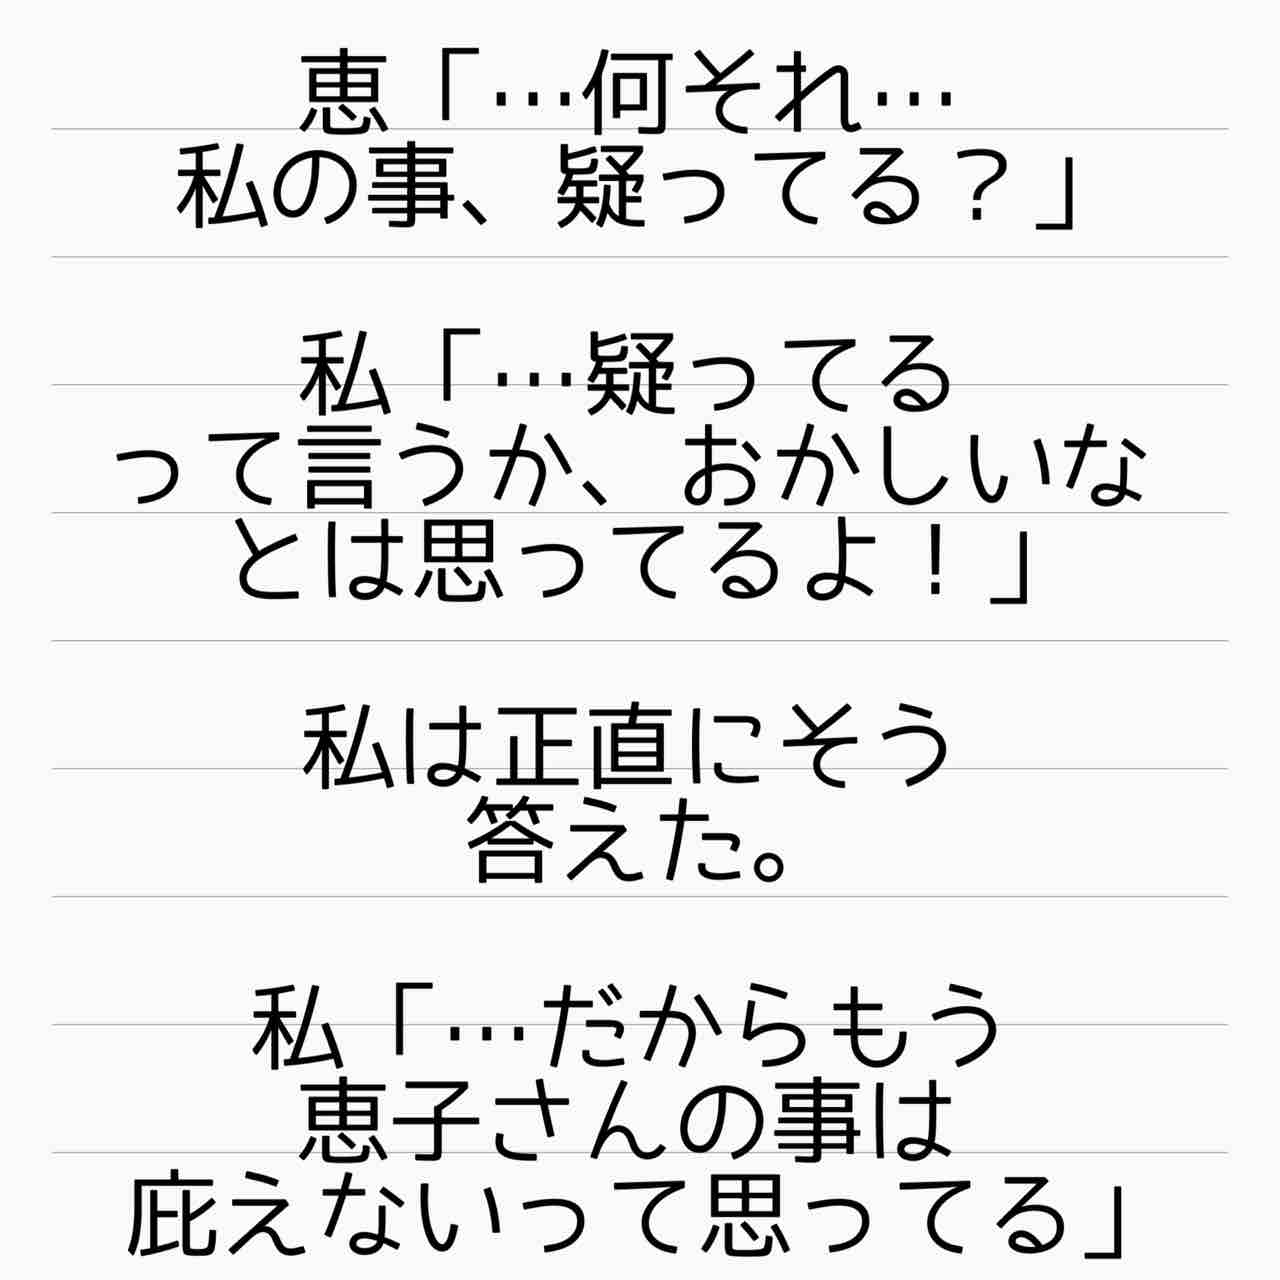 恵「…何それ…
私の事、疑ってる？」
私「…疑ってる
って言うか、おかしいな
とは思ってるよ！」
私は正直にそう
答えた。
私「…だからもう
恵子さんの事は
庇えないって思ってる」